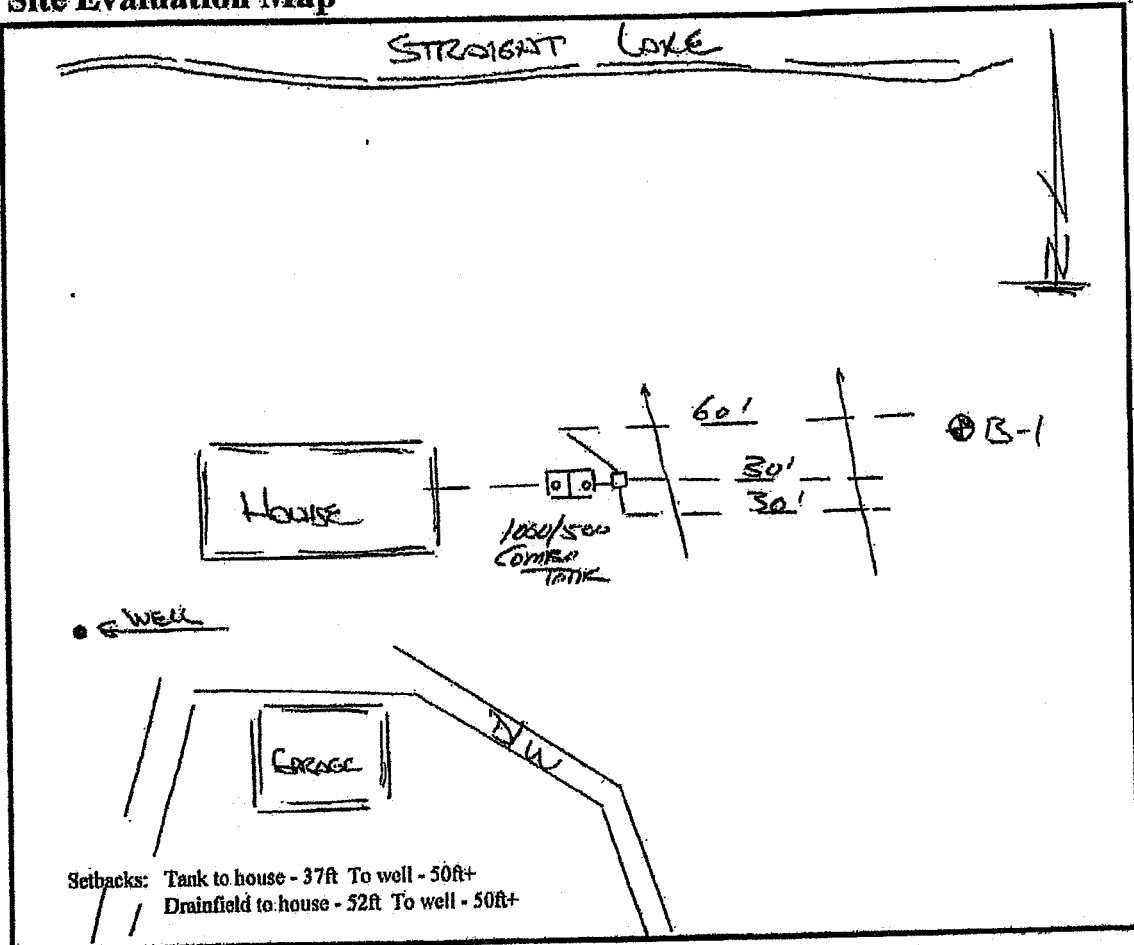 Site Evaluation Map
STRAIGHT LAKE
N
60'
B-1
30'
30'
HOUSE
1000/500
COMBO
TANK
WELL
D/W
GARAGE
Setbacks: Tank to house - 37ft To well - 50ft+
Drainfield to house - 52ft To well - 50ft+